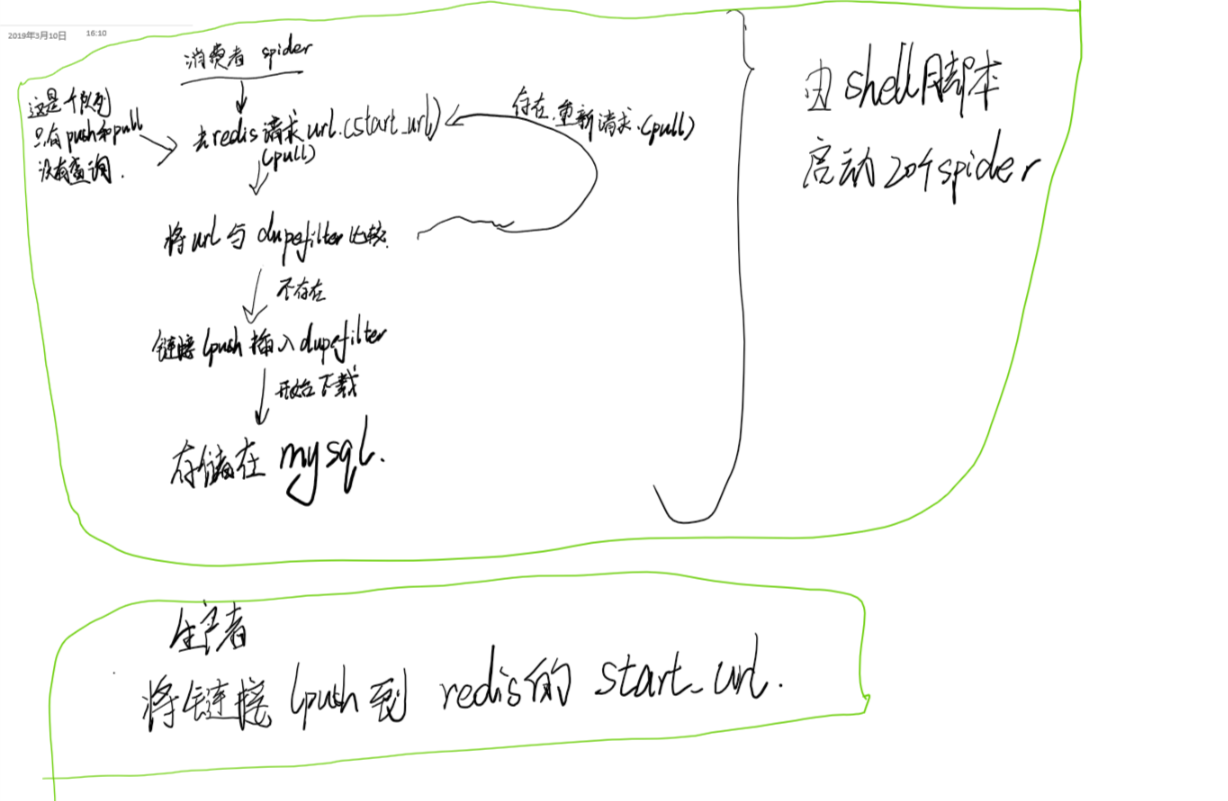 2019年3月10日 16:10
消费者 spider
这是个队列
只有push和pull
没有查询.
去redis请求url.(start_url)
(pull)
存在.重新请求.(pull)
将url与dupefilter比较.
不存在
链接lpush插入dupefilter
开始下载
存储在mysql.
由shell脚本
启动20个spider
生产者
将链接lpush到redis的start_url.